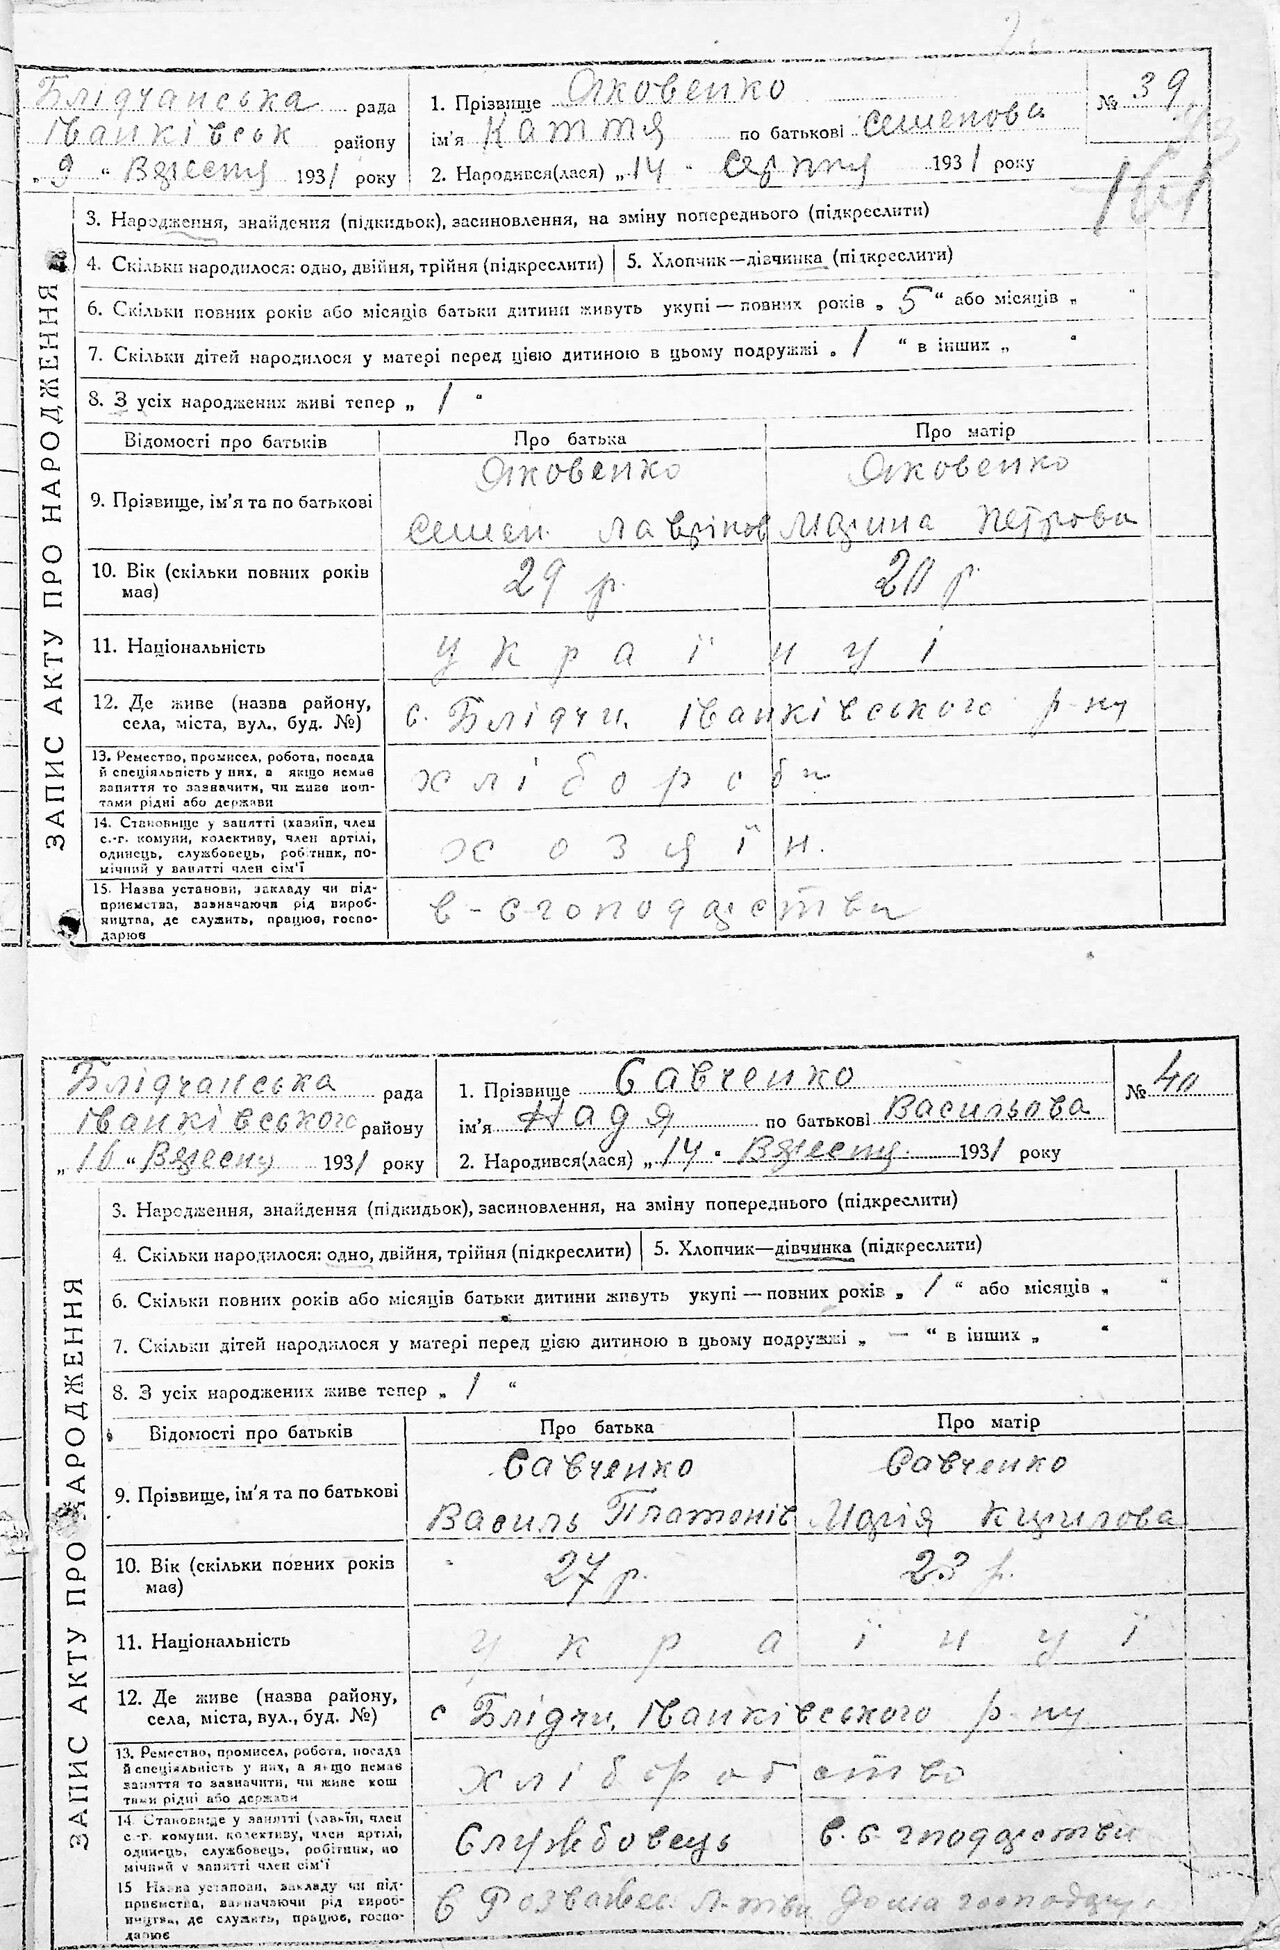 Блідчанська рада
Іванківськ району
„ 9 “ Вересня 1931 року
1. Прізвище Яковенко
ім'я Каття по батькові Семенова
2. Народився(лася) „ 14 “ Серпня 1931 року
№ 39
161
ЗАПИС АКТУ ПРО НАРОДЖЕННЯ
3. Народження, знайдення (підкидьок), засиновлення, на зміну попереднього (підкреслити)
4. Скільки народилося: одно, двійня, трійня (підкреслити) 5. Хлопчик—дівчинка (підкреслити)
6. Скільки повних років або місяців батьки дитини живуть укупі — повних років „ 5 “ або місяців „ “
7. Скільки дітей народилося у матері перед цією дитиною в цьому подружжі „ 1 “ в інших „ “
8. З усіх народжених живі тепер „ 1 “
Відомості про батьків Про батька Про матір
9. Прізвище, ім'я та по батькові Яковенко Яковенко
Семен Лаврінов Марина Петрова
10. Вік (скільки повних років має) 29 р. 20 р
11. Національність українці
12. Де живе (назва району,
села, міста, вул., буд. №) с. Блідчи, Іванківського р-ну
13. Ремество, промисел, робота, посада
й спеціяльність у них, а якщо немає
заняття то зазначити, чи живе кош-
тами рідні або держави
хліброби
14. Становище у занятті (хазяїн, член
с.-г. комуни, колективу, член артілі,
одинець, службовець, робітник, по-
мічний у занятті член сім'ї
хозяїн.
15. Назва установи, закладу чи під-
приємства, зазначаючи рід вироб-
ництва, де служить, працює, госпо-
дарює
Блідчанська рада
Іванківського району
„ 16 “ Вересня 1931 року
1. Прізвище Савченко
ім'я Надя по батькові Васильова
2. Народився(лася) „ 14 “ Вересня 1931 року
№ 40
ЗАПИС АКТУ ПРО НАРОДЖЕННЯ
3. Народження, знайдення (підкидьок), засиновлення, на зміну попереднього (підкреслити)
4. Скільки народилося: одно, двійня, трійня (підкреслити) 5. Хлопчик—дівчинка (підкреслити)
6. Скільки повних років або місяців батьки дитини живуть укупі — повних років „ 1 “ або місяців „ “
7. Скільки дітей народилося у матері перед цією дитиною в цьому подружжі „ — “ в інших „ “
8. З усіх народжених живе тепер „ 1 “
Відомості про батьків Про батька Про матір
9. Прізвище, ім'я та по батькові Савченко Савченко
Василь Платонів Марія Кирилова
10. Вік (скільки повних років має) 27 р. 23 р.
11. Національність українці
12. Де живе (назва району,
села, міста, вул., буд. №) с Блідчи, Іванківського р-ну
13. Ремество, промисел, робота, посада
й спеціяльність у них, а якщо немає
заняття то зазначити, чи живе кош
тами рідні або держави
хліборобство
14. Становище у занятті (хазяїн, член
с.-г. комуни, колективу, член артілі,
одинець, службовець, робітник, по
мічний у занятті член сім'ї
Службовець
15 Назва установи, закладу чи під-
приємства, зазначаючи рід вироб-
ництва, де служить, працює, госпо-
дарює